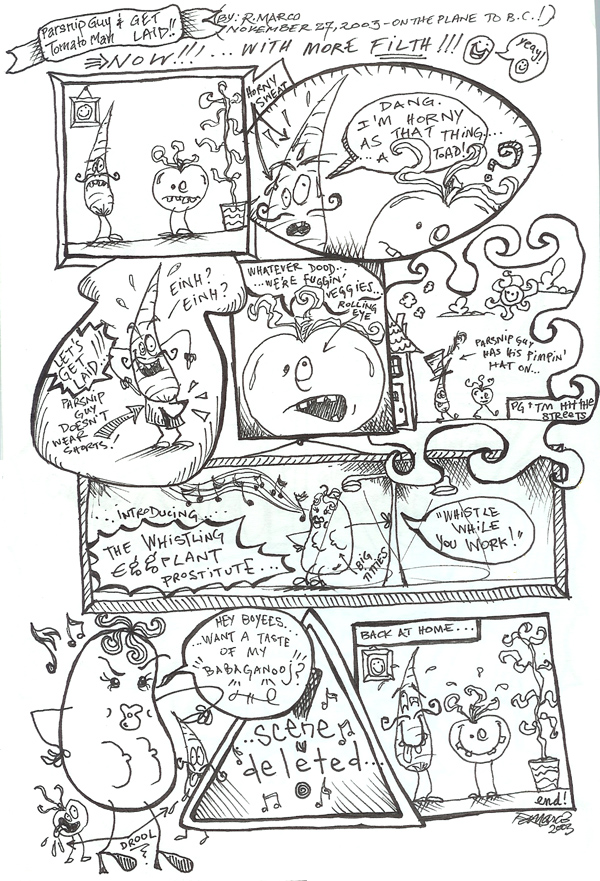 Parsnip Guy & GET
Tomato Man LAID!!
(BY: R. MARCO
NOVEMBER 27, 2003 - ON THE PLANE TO B.C.!)
NOW!!! ... WITH MORE FILTH!!!
yeay!
HORNY
SWEAT
DANG.
I'M HORNY
AS THAT THING....
...A TOAD!
EINH?
EINH?
LET'S
GET
LAID!!!
PARSNIP
GUY
DOESN'T
WEAR
SHORTS.
WHATEVER DOOD...
...WE'RE FUGGIN'
VEGGIES...
ROLLING
EYE
PARSNIP GUY
HAS HIS PIMPIN'
HAT ON...
PG + TM HIT THE
STREETS
...INTRODUCING...
THE WHISTLING
EGGPLANT
PROSTITUTE...
BIG
TITTIES
"WHISTLE
WHILE
YOU WORK!"
HEY BOYEES...
WANT A TASTE
OF MY
BABAGANOOJ?
DROOL
...scene
deleted...
BACK AT HOME...
end!
2003